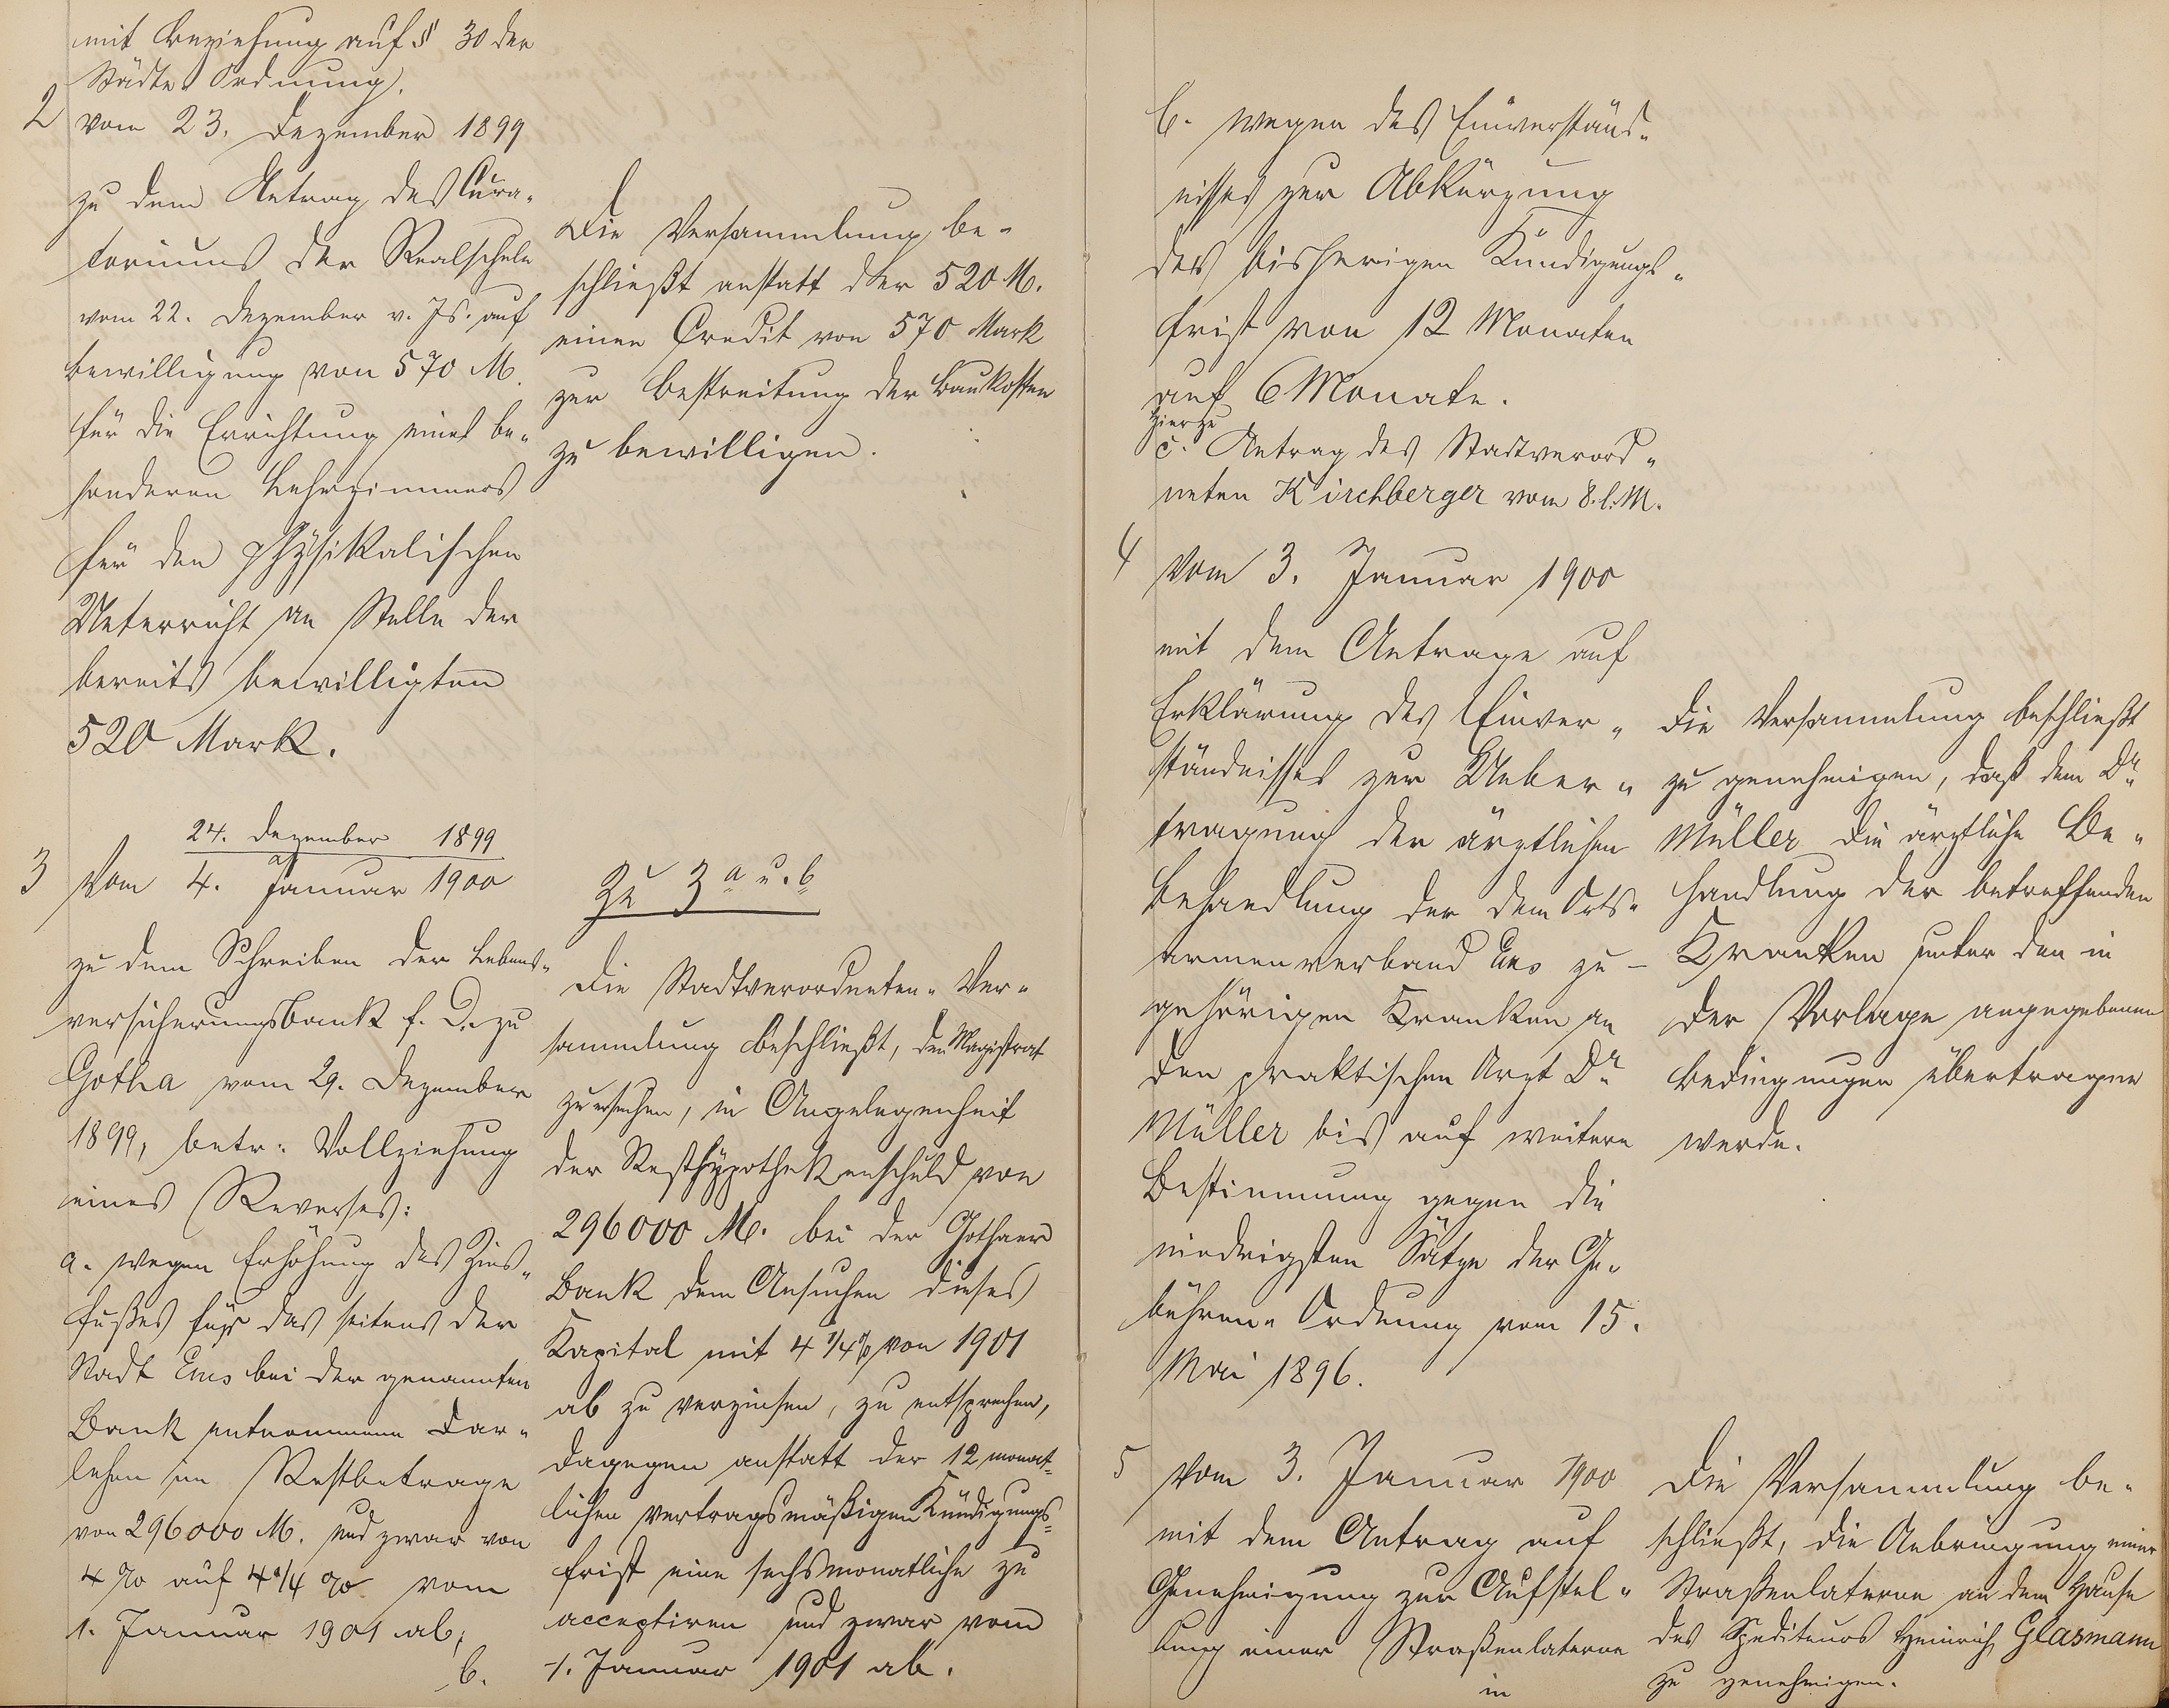 mit Beziehung auf § 30 der
Städte Ordnung.
2
vom 23. Dezember 1899
zu dem Antrag des Cura-
toriums der Realschule
vom 22. Dezember v. Js. auf
Bewilligung von 570 M.
für die Errichtung eines be-
sonderen Lehrzimmers
für den physikalischen
Unterricht an Stelle der
bereits bewilligten
520 Mark.
Die Versammlung be-
schließt anstatt der 520 M.
einen Credit von 570 Mark
zur Bestreitung der Baukosten
zu bewilligen.
3
Vom 24. Dezember 1899
4. Januar 1900
zu dem Schreiben der Lebens-
versicherungsbank f. D. zu
Gotha vom 29. Dezember
1899, betr: Vollziehung
eines Reverses:
a. wegen Erhöhung des Zins-
fußes für das seitens der
Stadt Ems bei der genannten
Bank entnommene Dar-
lehen im Restbetrage
von 296000 M. und zwar von
4 % auf 4 1/4 % vom
1. Januar 1901 ab;
b.
Zu 3 a u. b
Die Stadtverordneten-Ver-
sammlung beschließt, den Magistrat
zu ersuchen, in Angelegenheit
der Resthypothekenschuld von
296000 M. bei der Gothaer
Bank dem Ansuchen dieses
Kapital mit 4 1/4 % von 1901
ab zu verzinsen, zu entsprechen,
dagegen anstatt der 12 monat-
lichen vertragsmäßigen Kündigungs-
frist eine sechsmonatliche zu
acceptiren und zwar vom
1. Januar 1901 ab.
b. wegen des Einverständ-
nisses zur Abkürzung
der bisherigen Kündigungs-
frist von 12 Monaten
auf 6 Monate.
Hierzu
c. Antrag des Stadtverord-
neten Kirchberger vom 8. l. M.
4
Vom 3. Januar 1900
mit dem Antrage auf
Erklärung des Einver-
ständnisses zur Ueber-
tragung der ärztlichen
Behandlung der dem Orts-
armenverband Ems zu-
gehörigen Kranken an
den praktischen Arzt Dr.
Müller bis auf weitere
Bestimmung gegen die
niedrigsten Sätze der Ge-
bühren-Ordnung vom 15.
Mai 1896.
Die Versammlung beschließt
zu genehmigen, daß dem Dr.
Müller die ärztliche Be-
handlung der betreffenden
Kranken unter den in
der Vorlage angegebenen
Bedingungen übertragen
werde.
5
Vom 3. Januar 1900
mit dem Antrag auf
Genehmigung zur Aufstel-
lung einer Straßenlaterne
in
Die Versammlung be-
schließt, die Anbringung einer
Straßenlaterne an dem Hause
des Spediteurs Heinrich Glasmann
zu genehmigen.